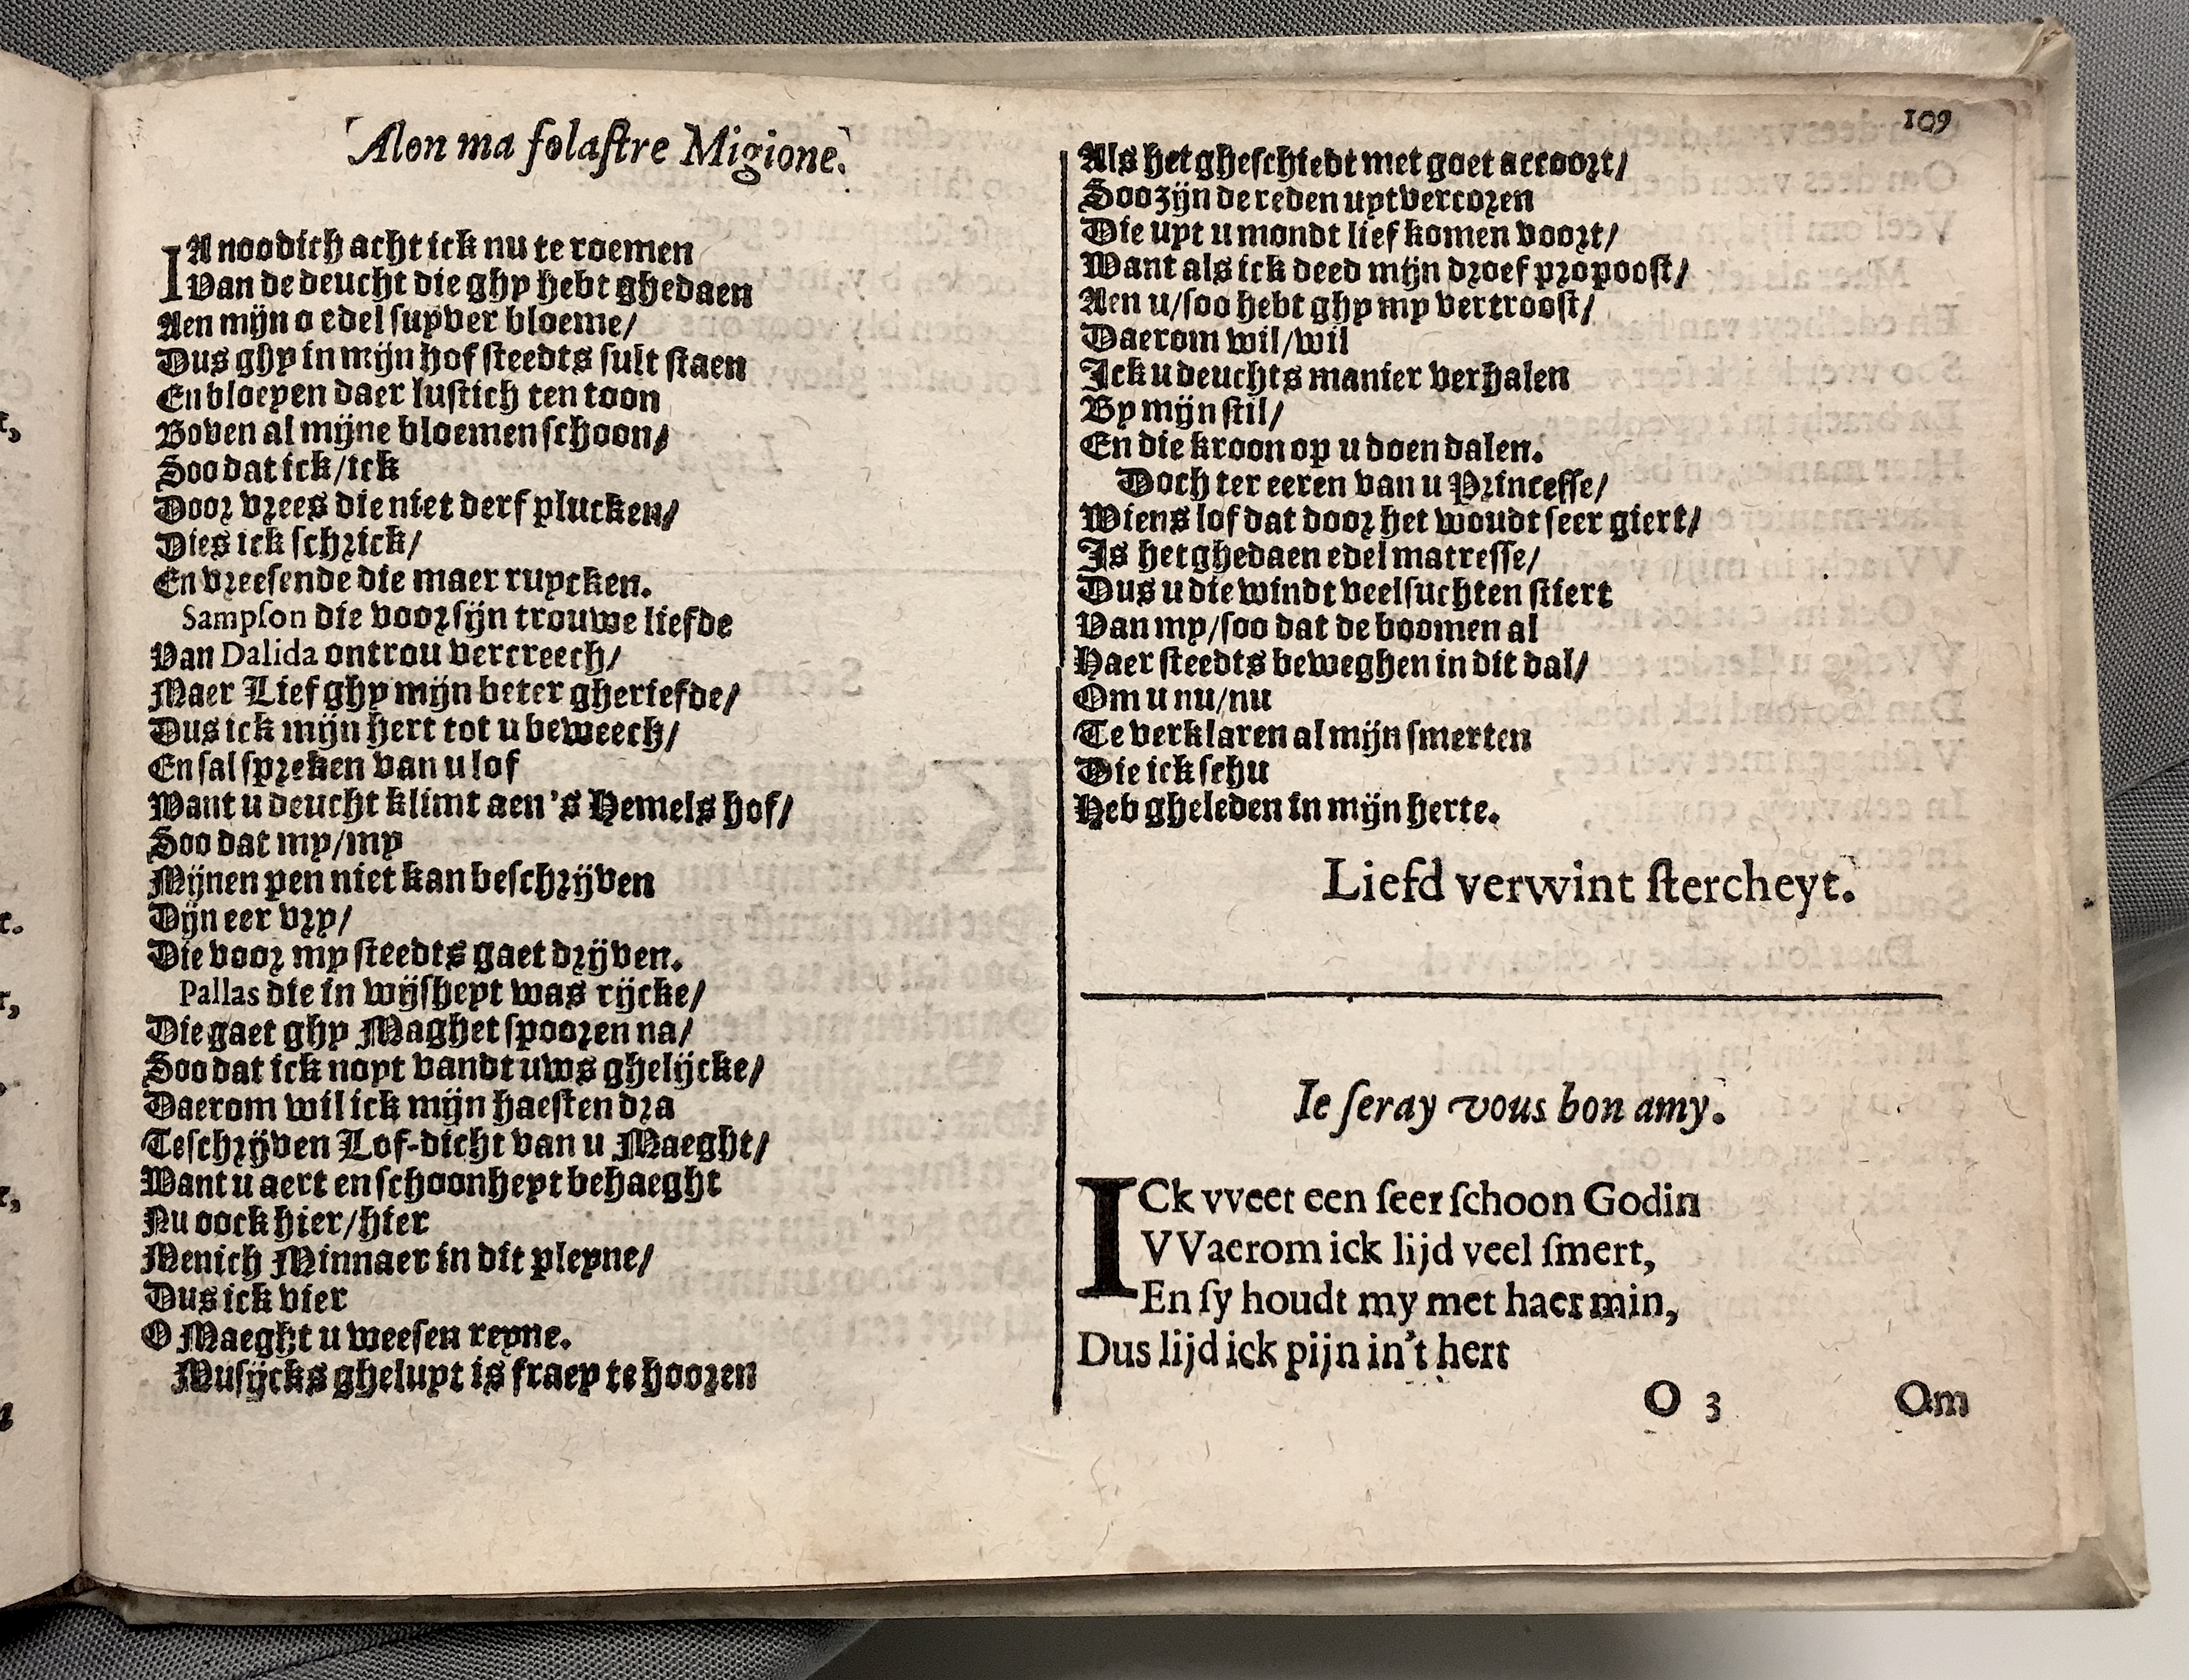 109
Alon ma folaſtre Migione.
IA noodich acht ick nu te roemen
Van de deucht die ghy hebt ghedaen
Aen mijn o edel ſuyver bloeme/
Dus ghy in mijn hof ſteedts ſult ſtaen
En bloeyen daer luſtich ten toon
Boven al mijne bloemen ſchoon/
Soo dat ick/ick
Door vrees die niet derf plucken/
Dies ick ſchrick/
En vreeſende die maer ruycken.
Sampſon die voor ſijn trouwe liefde
Van Dalida ontrou vercreech/
Maer Lief ghy mijn beter gheriefde/
Dus ick mijn hert tot u beweech/
En ſal ſpreken van u lof
Want u deucht klimt aen 's Hemels hof/
Soo dat my/my
Mijnen pen niet kan beſchrijven
Dijn eer vry/
Die voor my ſteedts gaet drijven.
Pallas die in wijſheyt was rijcke/
Die gaet ghy Maghet ſpooren na/
Soo dat ick noyt vandt uws ghelijcke/
Daerom wil ick mijn haeſten dra
Te ſchrijven Lof-dicht van u Maeght/
Want u aert en ſchoonheyt behaeght
Nu oock hier/hier
Menich Minnaer in dit pleyne/
Dus ick vier
O Maeght u weeſen reyne.
Muſijcks gheluyt is fraey te hooren
Als het gheſchiedt met goet accoort/
Soo zijn de reden uytvercoren
Die uyt u mondt lief komen voort/
Want als ick deed mijn droef propooſt/
Aen u/ſoo hebt ghy my vertrooſt/
Daerom wil/wil
Ick u deuchts manier verhalen
By mijn ſtil/
En die kroon op u doen dalen.
Doch ter eeren van u Princeſſe/
Wiens lof dat door het woudt ſeer giert/
Is het ghedaen edel matreſſe/
Dus u die windt veel ſuchten ſtiert
Van my/ſoo dat de boomen al
Haer ſteedts beweghen in dit dal/
Om u nu/nu
Te verklaren al mijn ſmerten
Die ick ſchu
Heb gheleden in mijn herte.
Liefd verwint ſtercheyt.
Ie ſeray vous bon amy.
ICk vveet een ſeer ſchoon Godin
VVaerom ick lijd veel ſmert,
En ſy houdt my met haer min,
Dus lijd ick pijn in't hert
O 3 Om